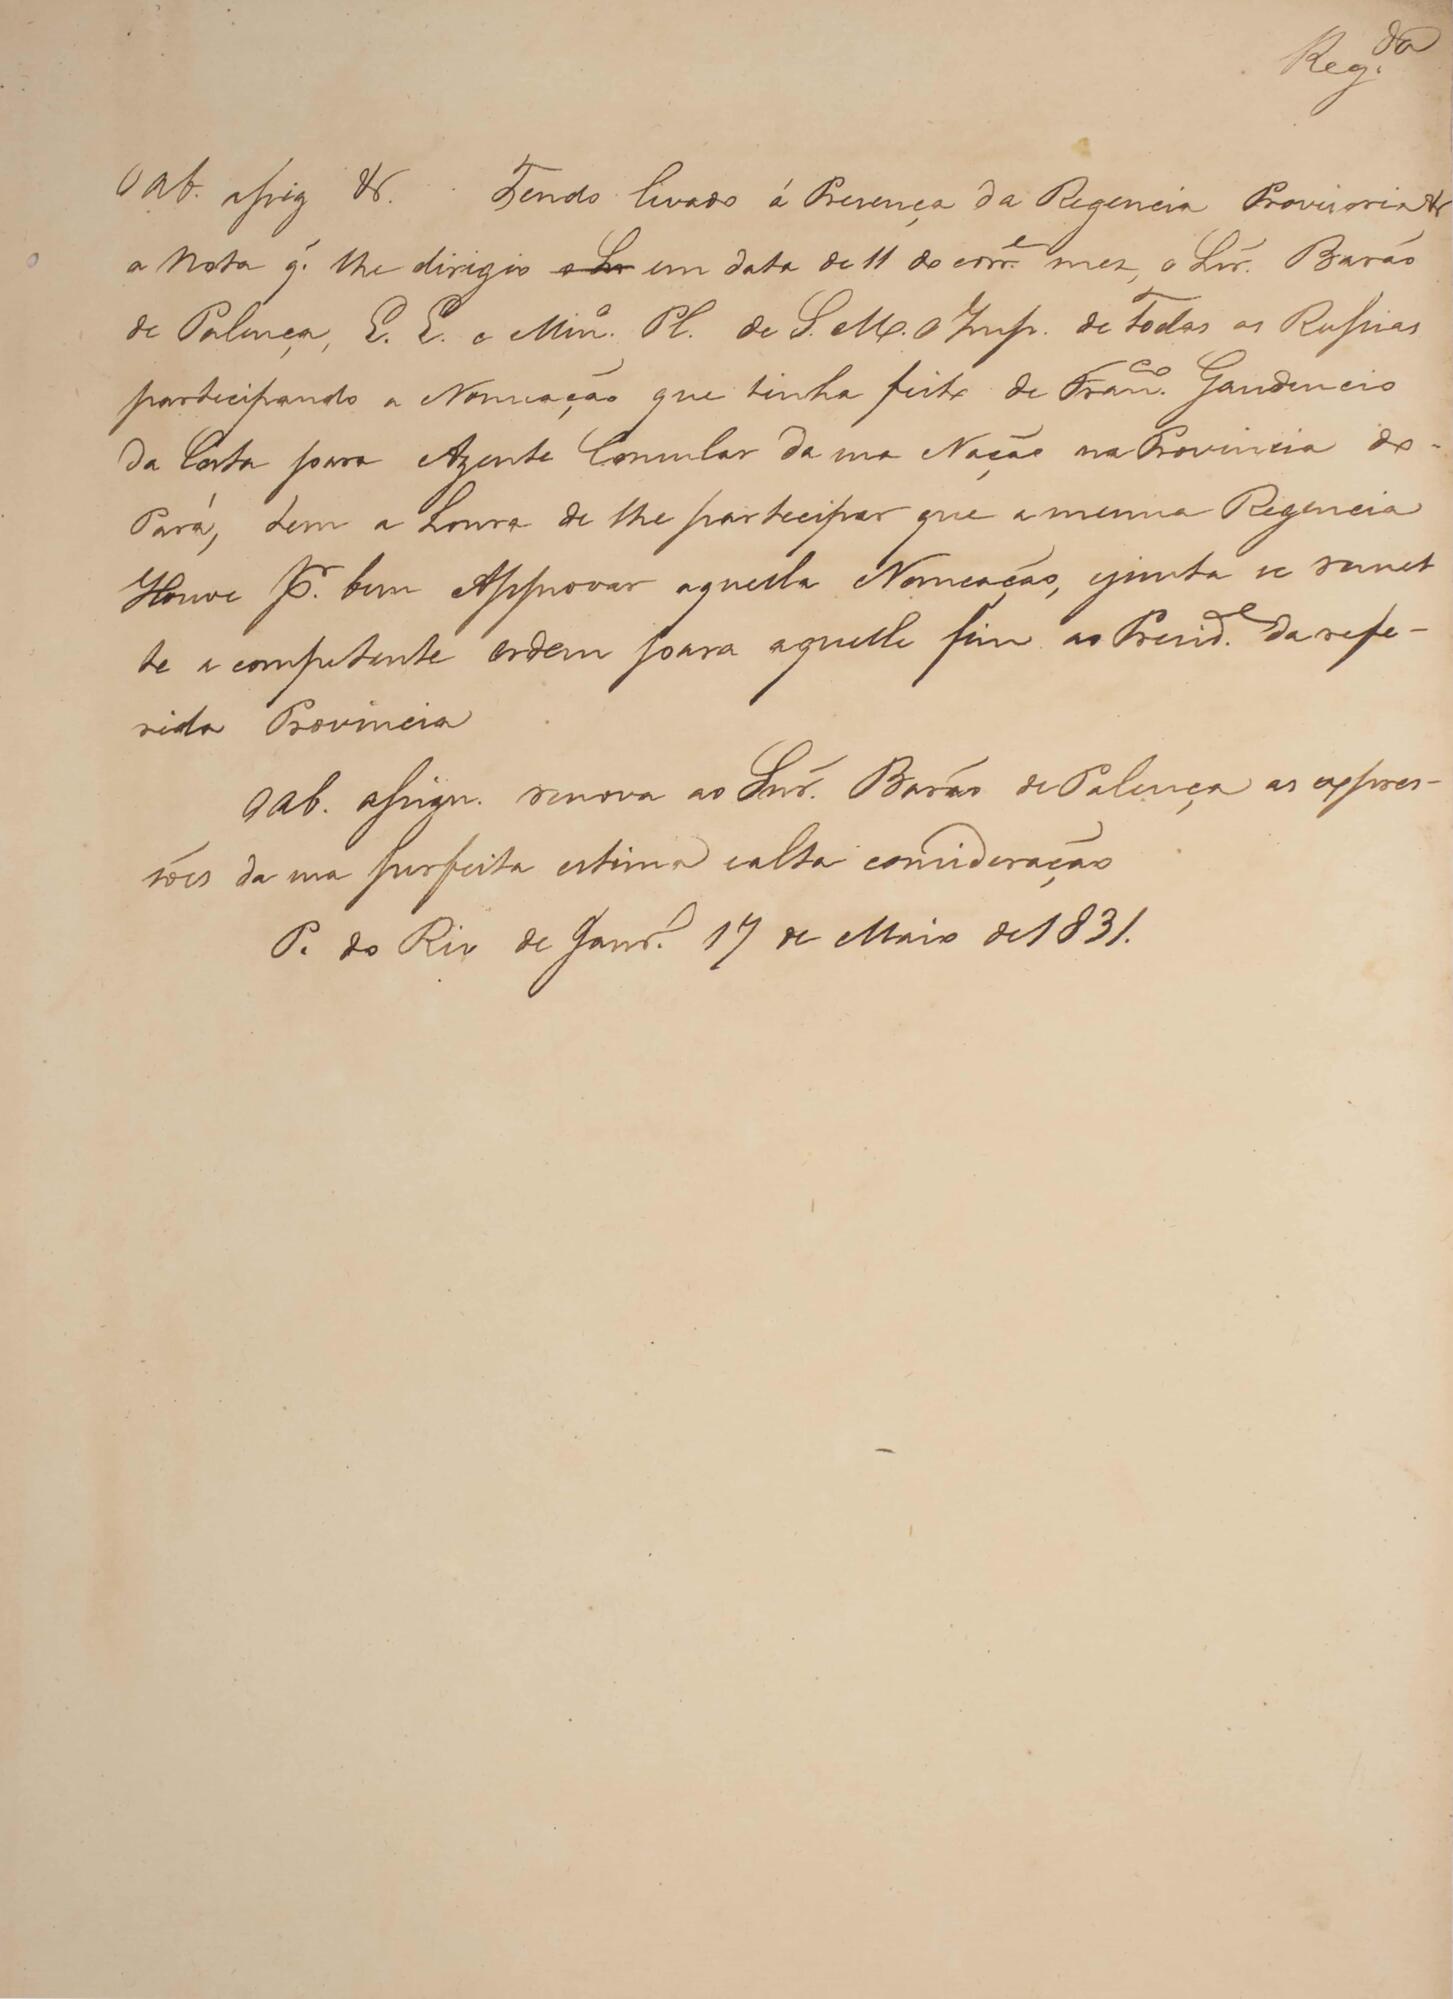 Reg.da
O ab. assig &. Tendo levado á Presença da Regencia Provisoria &
a Nota q. lhe dirigio o Sr em data de 11 do corr.e mez, o Snr. Barão
de Palença, E. E. e Min.o Pl. de S. M. O Imp. de Todas as Russias
participando a Nomeação que tinha feito de Fran.co Gaudencio
da Costa para Agente Consular da sua Nação na Provincia do
Pará, tem a honra de lhe participar que a mesma Regencia
Houve P.r bem Approvar aquella Nomeação, e junta se remet
te a competente ordem para aquelle fim ao Presid.e da refe-
rida Provincia
O ab. assign. renova ao Snr. Barão de Palença as expres-
sões da sua perfeita estima e alta consideração
P. do Rio de Janr.o 17 de Maio de 1831.